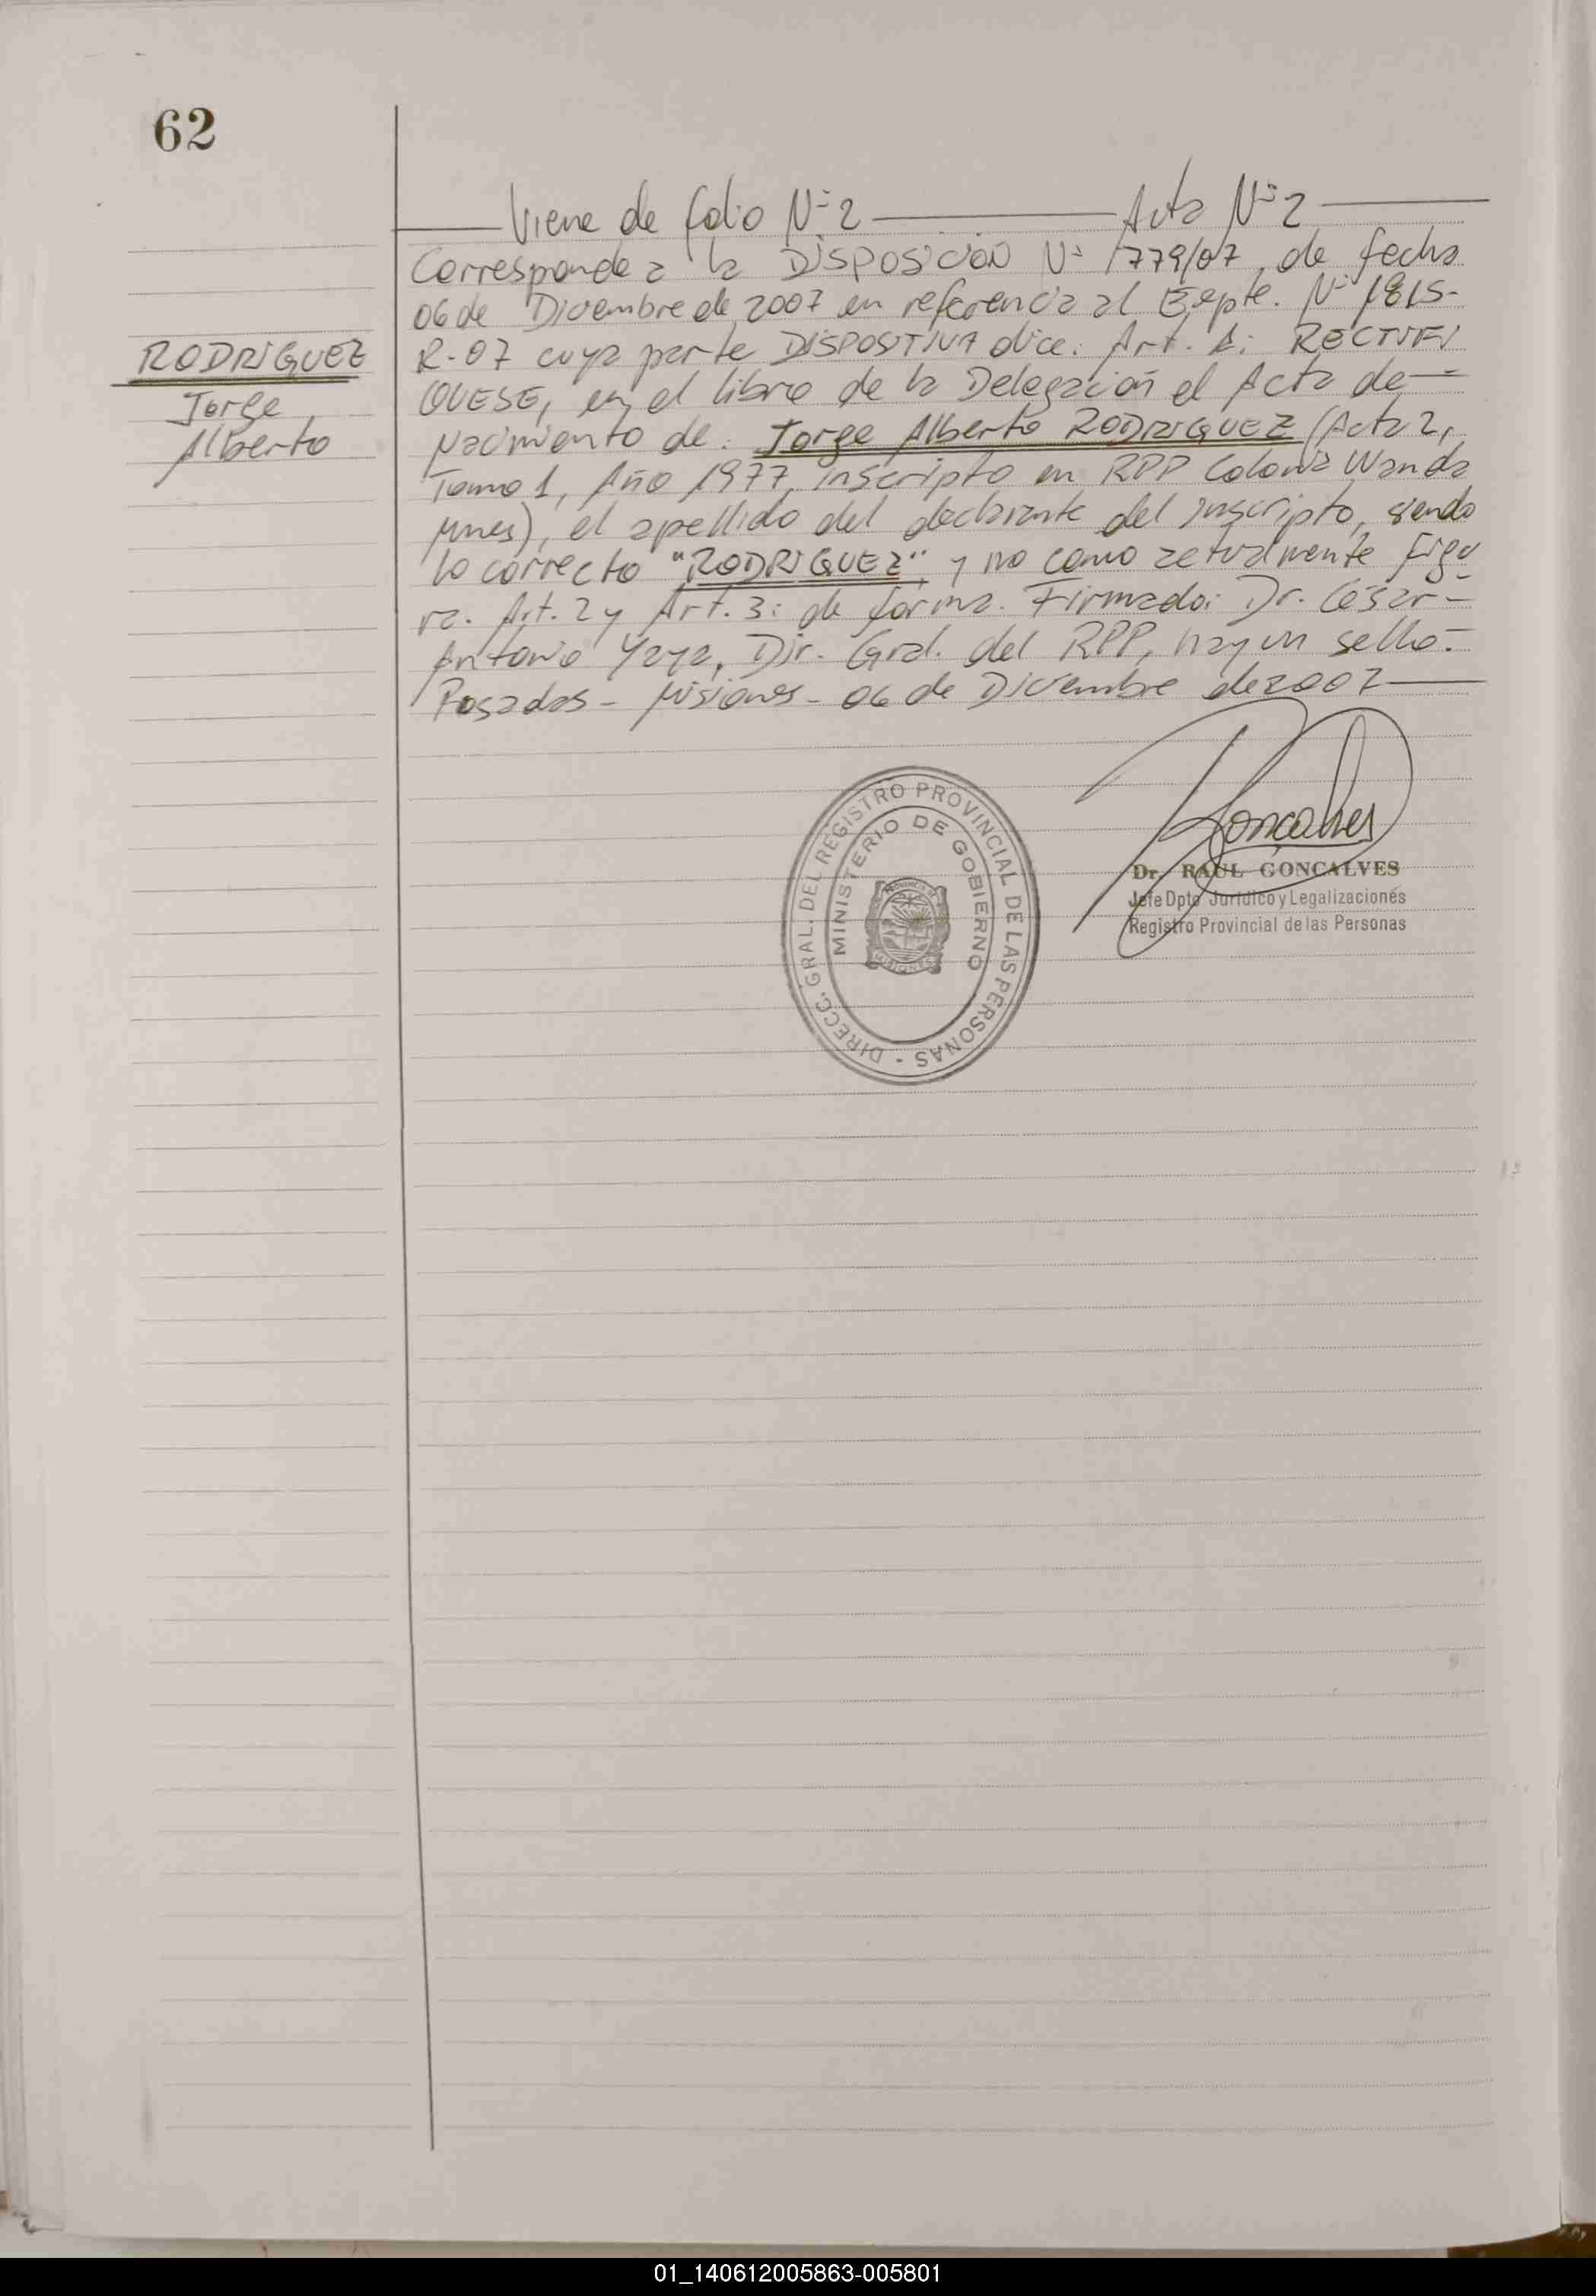 62
Viene de folio Nº 2 Acta Nº 2
Corresponde a la DISPOSICIÓN Nº 1779/07, de fecha
06 de Diciembre de 2007 en referencia al Expte. Nº 1815-
R-07 cuya parte DISPOSITIVA dice: Art. 1: RECTIFI
QUESE, en el libro de la Delegación el Acta de
Nacimiento de: Jorge Alberto RODRIGUEZ (Acta 2,
Tomo 1, Año 1977, inscripto en RPP Colonia Wanda
Mnes), el apellido del declarante del inscripto, siendo
lo correcto "RODRIGUEZ", y no como actualmente figu
ra. Art. 2 y Art. 3: de forma. Firmado: Dr. César
Antonio Yaya, Dir. Gral. del RPP, hay un sello.
Posadas - Misiones - 06 de Diciembre de 2007
RODRIGUEZ
Jorge
Alberto
Goncalves
Dr. RAUL GONCALVES
Jefe Dpto Jurídico y Legalizaciones
Registro Provincial de las Personas
DIRECC. GRAL. DEL REGISTRO PROVINCIAL DE LAS PERSONAS -
MINISTERIO DE GOBIERNO
PROVINCIA DE
MISIONES
01_140612005863-005801